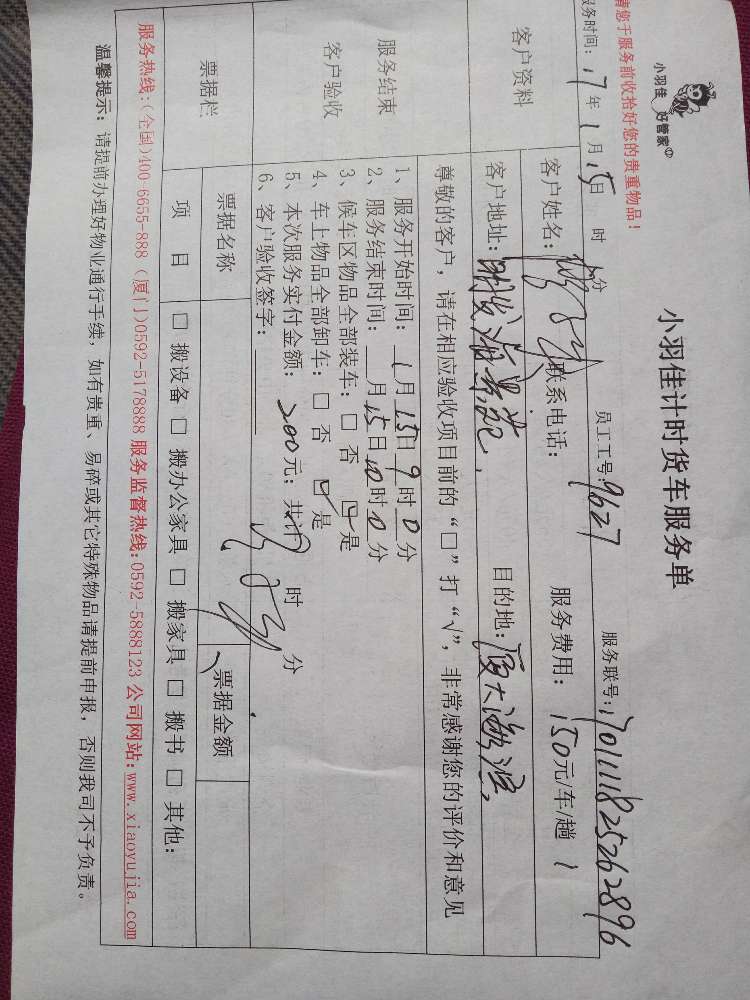 小羽佳 好管家
请您于服务前收拾好您的贵重物品！
小羽佳计时货车服务单
服务时间：17年1月15日 时 分 员工工号：9627 服务联号：170111825262896
客户资料
客户姓名： 联系电话： 服务费用：150元/车/趟
客户地址： 目的地：厦大海滨
服务结束
客户验收
尊敬的客户，请在相应验收项目前的“□”打“√”，非常感谢您的评价和意见
1、服务开始时间：1月15日9时0分
2、服务结束时间：__月15日10时0分
3、候车区物品全部装车：□ 否 ☑ 是
4、车上物品全部卸车：□ 否 ☑ 是
5、本次服务实付金额：200元；共计 时 分
6、客户验收签字：
票据栏
票据名称 票据金额
项 目 □ 搬设备 □ 搬办公家具 □ 搬家具 □ 搬书 □ 其他：
服务热线：(全国)400-6655-888 (厦门)0592-5178888 服务监督热线:0592-5888123 公司网站:www.xiaoyujia.com
温馨提示：请提前办理好物业通行手续，如有贵重、易碎或其它特殊物品请提前申报，否则我司不予负责。